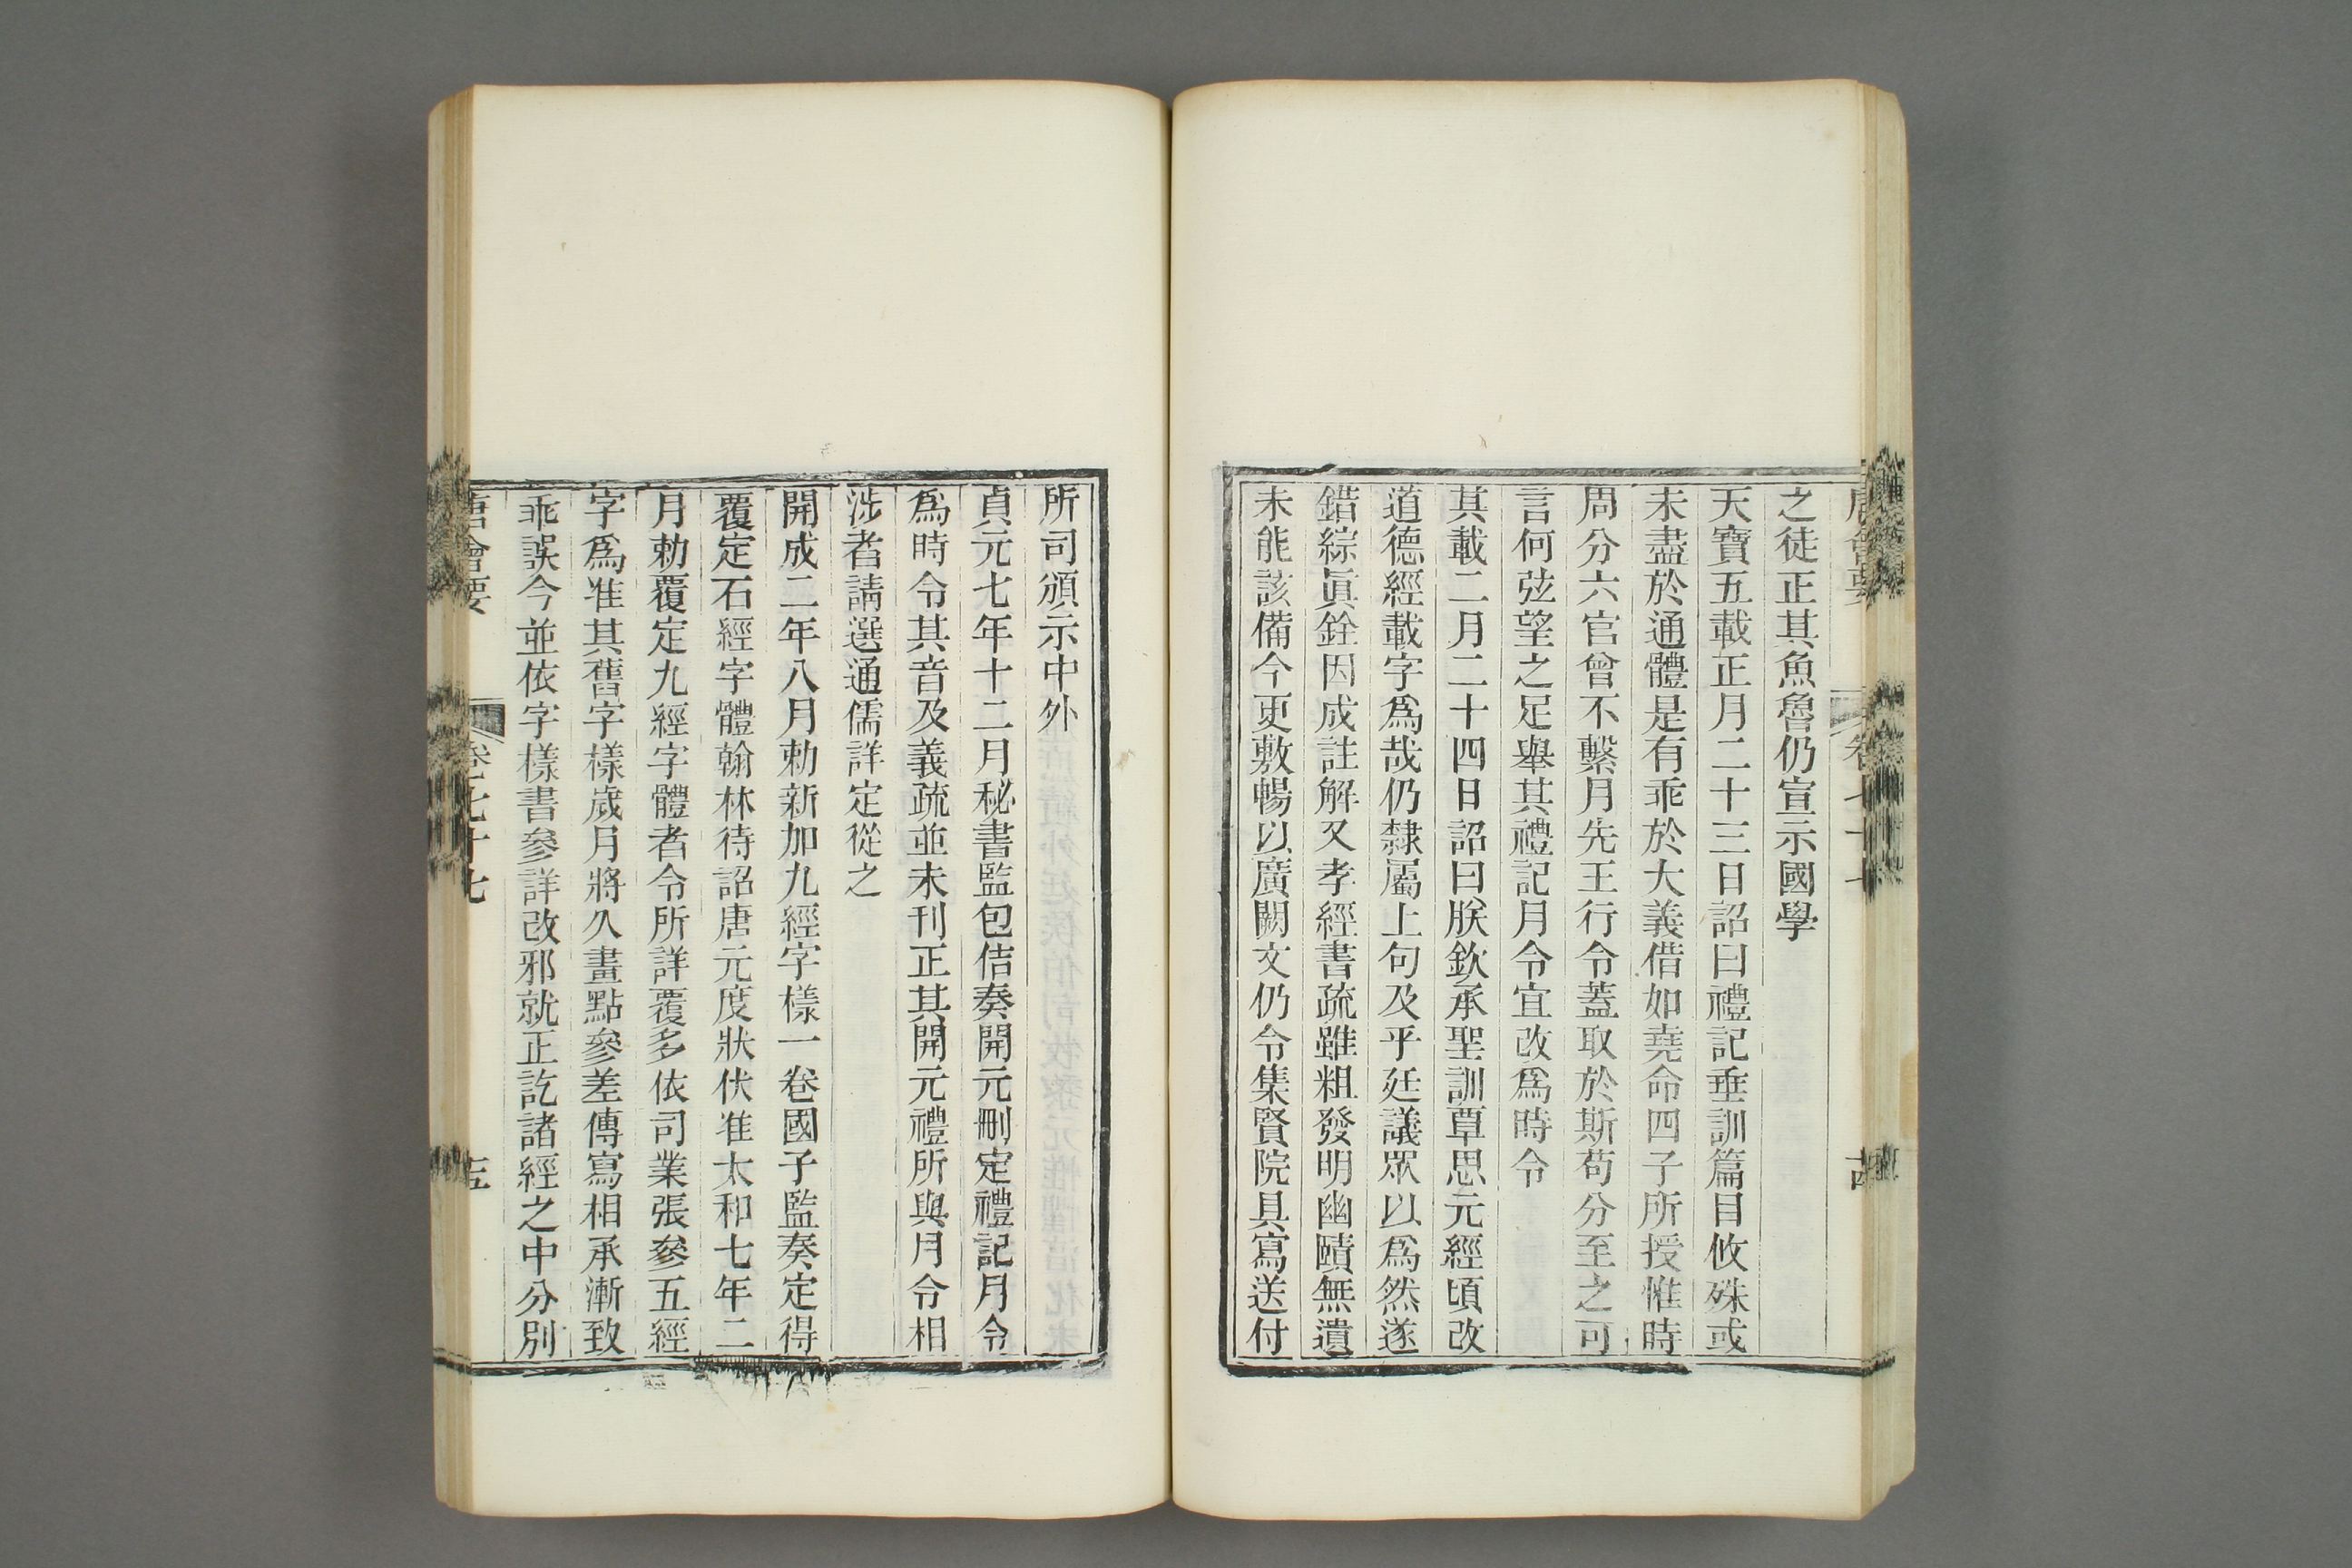 唐會要 卷七十七 十四
之徒正其魚魯仍宣示國學
天寶五載正月二十三日詔曰禮記垂訓篇目攸殊或
未盡於通體是有乖於大義借如堯命四子所授惟時
周分六官曾不繫月先王行令蓋取於斯苟分至之可
言何弦望之足舉其禮記月令宜改爲時令
其載二月二十四日詔曰朕欽承聖訓覃思元經頃改
道德經載字爲哉仍隸屬上句及乎廷議眾以爲然遂
錯綜眞銓因成註解又孝經書疏雖粗發明幽賾無遺
未能該備今更敷暢以廣闕文仍令集賢院具寫送付
所司頒示中外
貞元七年十二月秘書監包佶奏開元刪定禮記月令
爲時令其音及義疏並未刊正其開元禮所與月令相
涉者請選通儒詳定從之
開成二年八月勅新加九經字樣一卷國子監奏定得
覆定石經字體翰林待詔唐元度狀伏准太和七年二
月勅覆定九經字體者令所詳覆多依司業張參五經
字爲准其舊字樣歲月將久畫點參差傳寫相承漸致
乖誤今並依字樣書參詳改邪就正訖諸經之中分別
唐會要 卷七十七 十五